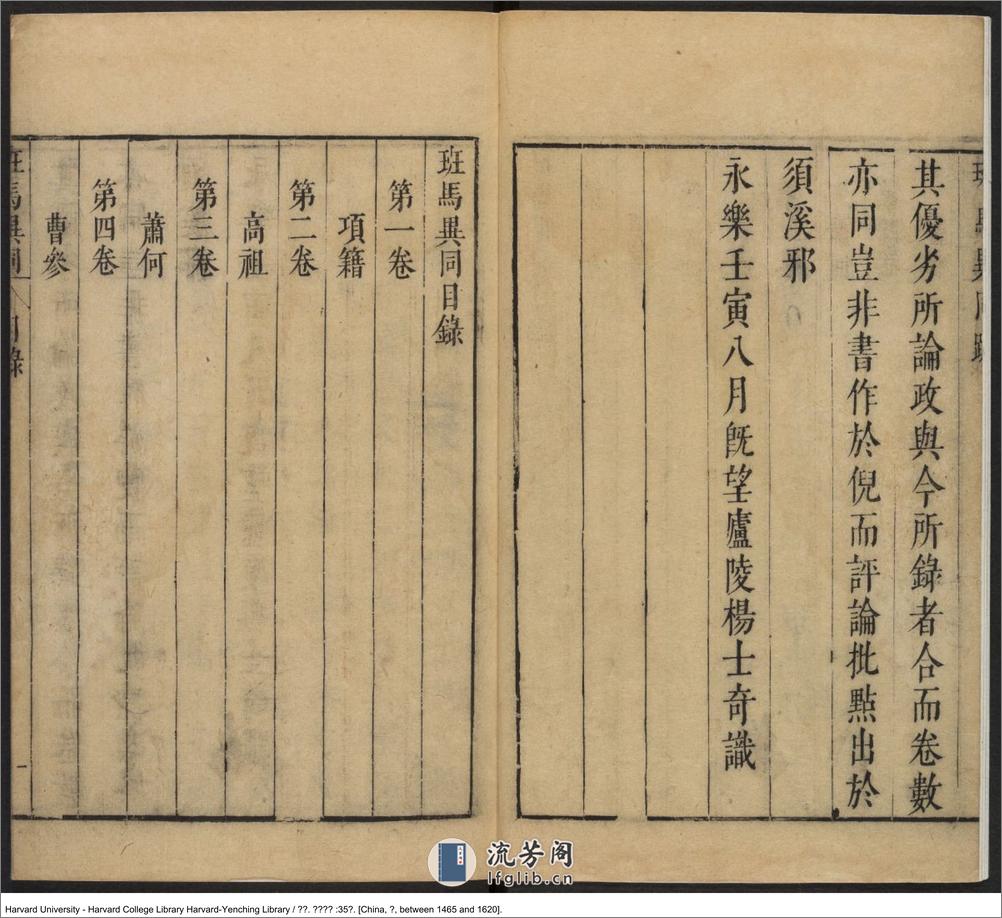 其優劣所論政與今所錄者合而卷數
亦同豈非書作於倪而評論批點出於
須溪邪
永樂壬寅八月旣望廬陵楊士奇識
班馬異同目錄
第一卷
項籍
第二卷
高祖
第三卷
蕭何
第四卷
曹參
班馬異同
目錄
一
流芳阁
lfglib.cn
Harvard University - Harvard College Library Harvard-Yenching Library / ??. ???? :35?. [China, ?, between 1465 and 1620].